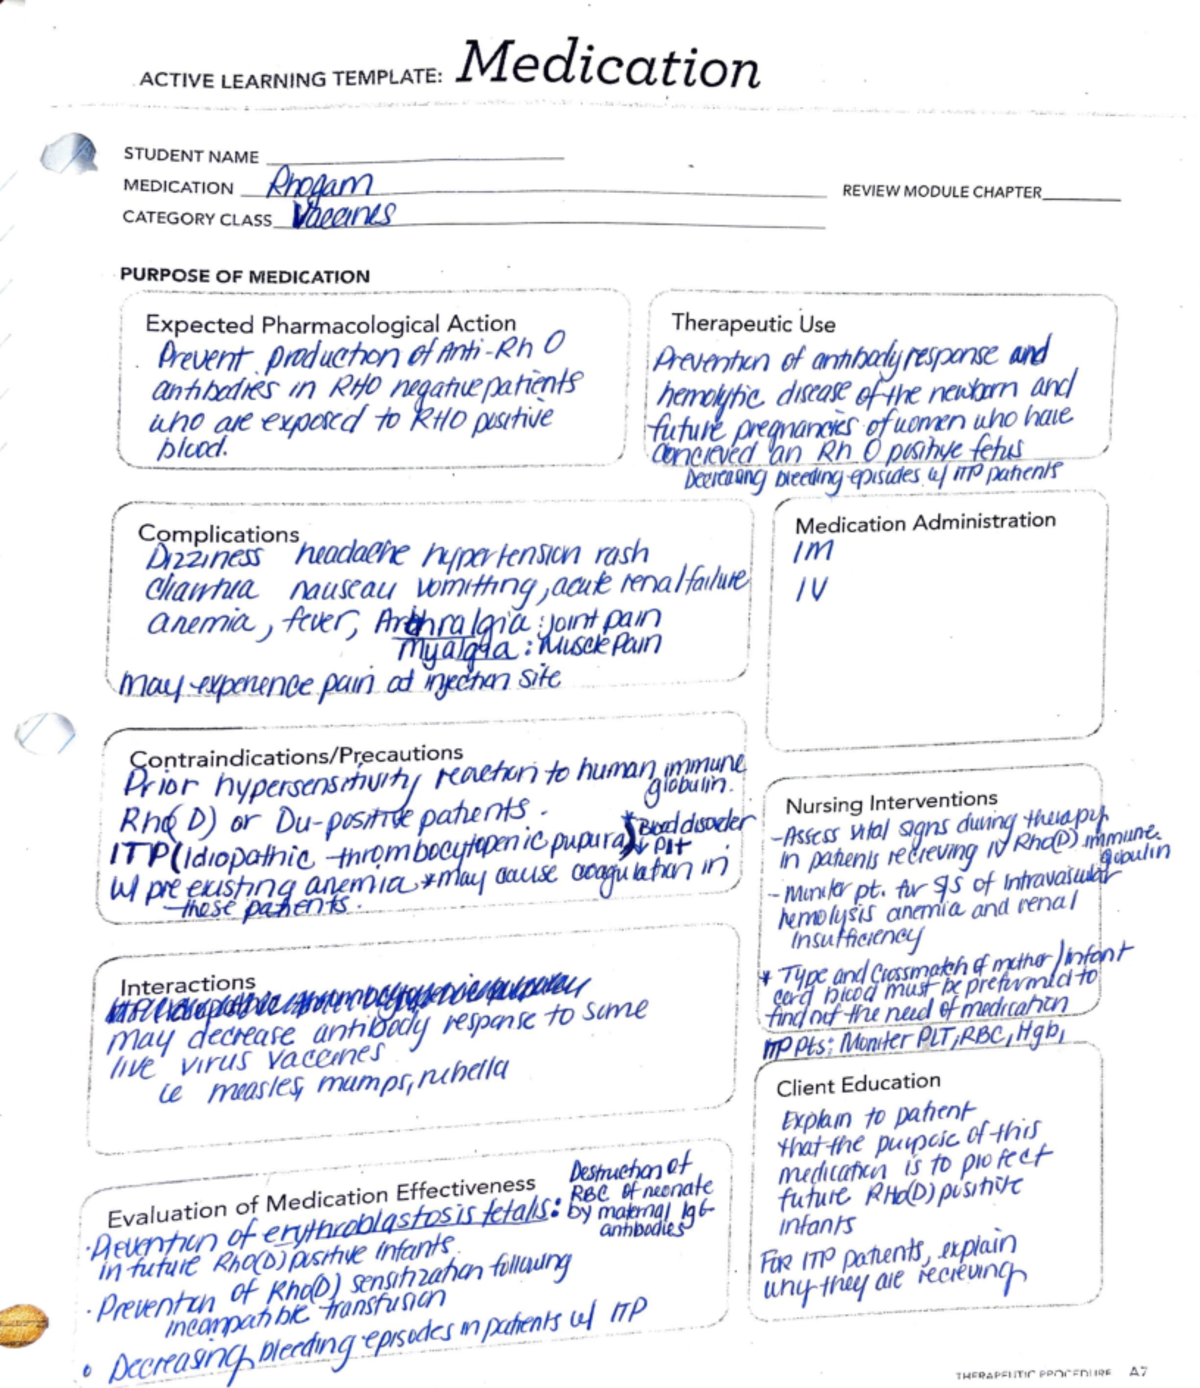 ACTIVE LEARNING TEMPLATE: Medication
STUDENT NAME
MEDICATION Rhogam
REVIEW MODULE CHAPTER
CATEGORY CLASS Vaccines
PURPOSE OF MEDICATION
Expected Pharmacological Action
Prevent production of Anti-Rh O
antibodies in RHO negative patients
who are exposed to RHO positive
blood.
Therapeutic Use
Prevention of antibody response and
hemolytic disease of the newborn and
future pregnancies of women who have
concieved an Rh O positive fetus
Decreasing bleeding episodes w/ ITP patients
Complications
Dizziness headache hypertension rash
diarrhia nauseau vomitting, acute renal failure
anemia, fever, Arthralgia : joint pain
Myalgia : Muscle Pain
may experience pain at injection site
Medication Administration
IM
IV
Contraindications/Precautions
Prior hypersensitivity reaction to human immune
globulin.
Rho(D) or Du-positive patients.
ITP (Idiopathic thrombocytopenic pupura) * Blood disorder
↓ plt
w/ pre existing anemia *may cause coagulation in
these patients.
Nursing Interventions
-Assess vital signs during therapy
in patients recieving IV Rho(D) immune
globulin
- Moniter pt. for S/S of Intravascular
hemolysis anemia and renal
insufficiency
* Type and Crossmatch of mother/infant
cord blood must be preformed to
find out the need of medication
ITP Pts: Moniter PLT, RBC, Hgb,
Interactions
may decrease antibody response to some
live virus vaccines
ie measles, mumps, rubella
Client Education
Explain to patient
that the purpose of this
medication is to protect
future RHo(D) positive
infants
For ITP patients, explain
why they are recieving
Evaluation of Medication Effectiveness
· Prevention of erythroblastosis fetalis: Destruction of
RBC of neonate
by maternal IgG
antibodies
in future Rho(D) positive infants.
· Prevention of Rho(D) sensitization following
incompatible transfusion
• Decreasing bleeding episodes in patients w/ ITP
THERAPEUTIC PROCEDURE A7